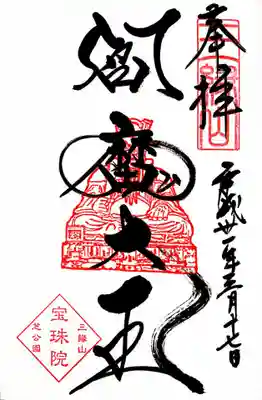 奉拝
平成廿一年三月十七日
閻魔大王
三縁山
宝珠院
芝公園